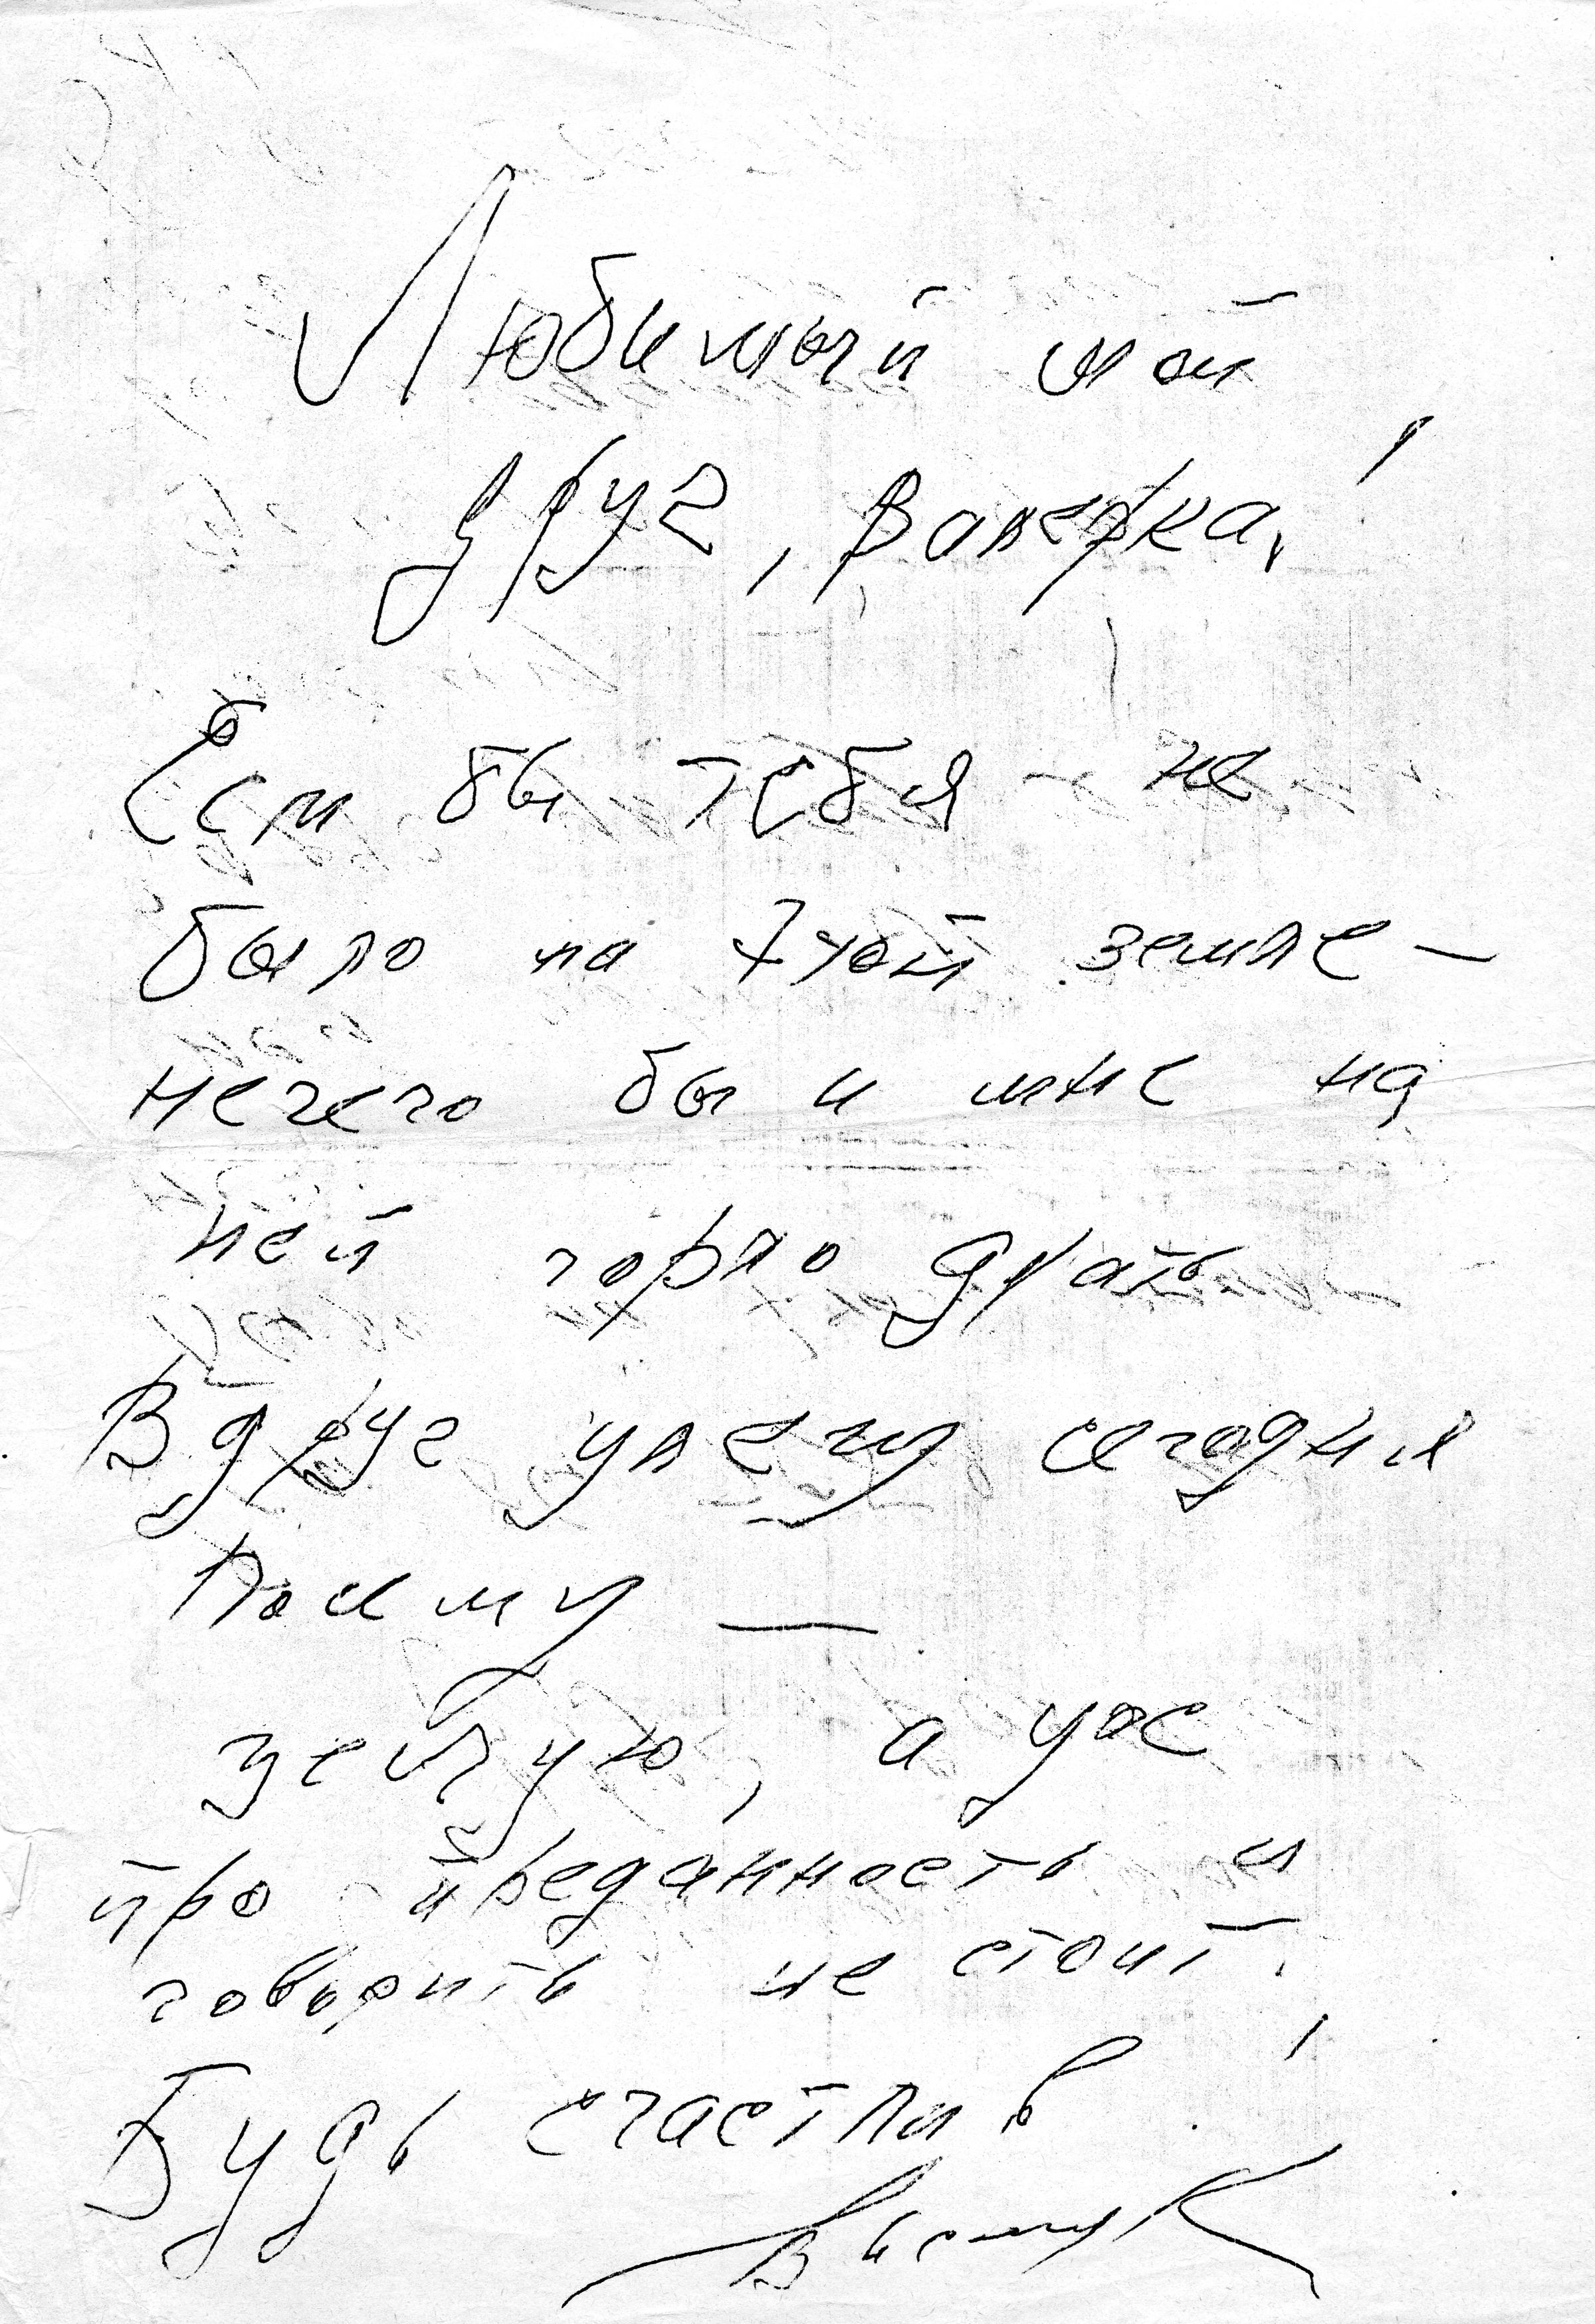 Любимый мой
друг, Валерка!
Если бы тебя не
было на этой земле —
нечего бы и мне на
ней горло драть
Вдруг улечу сегодня
Посему —
целую, а уже
про преданность и
говорить не стоит!
Будь счастлив